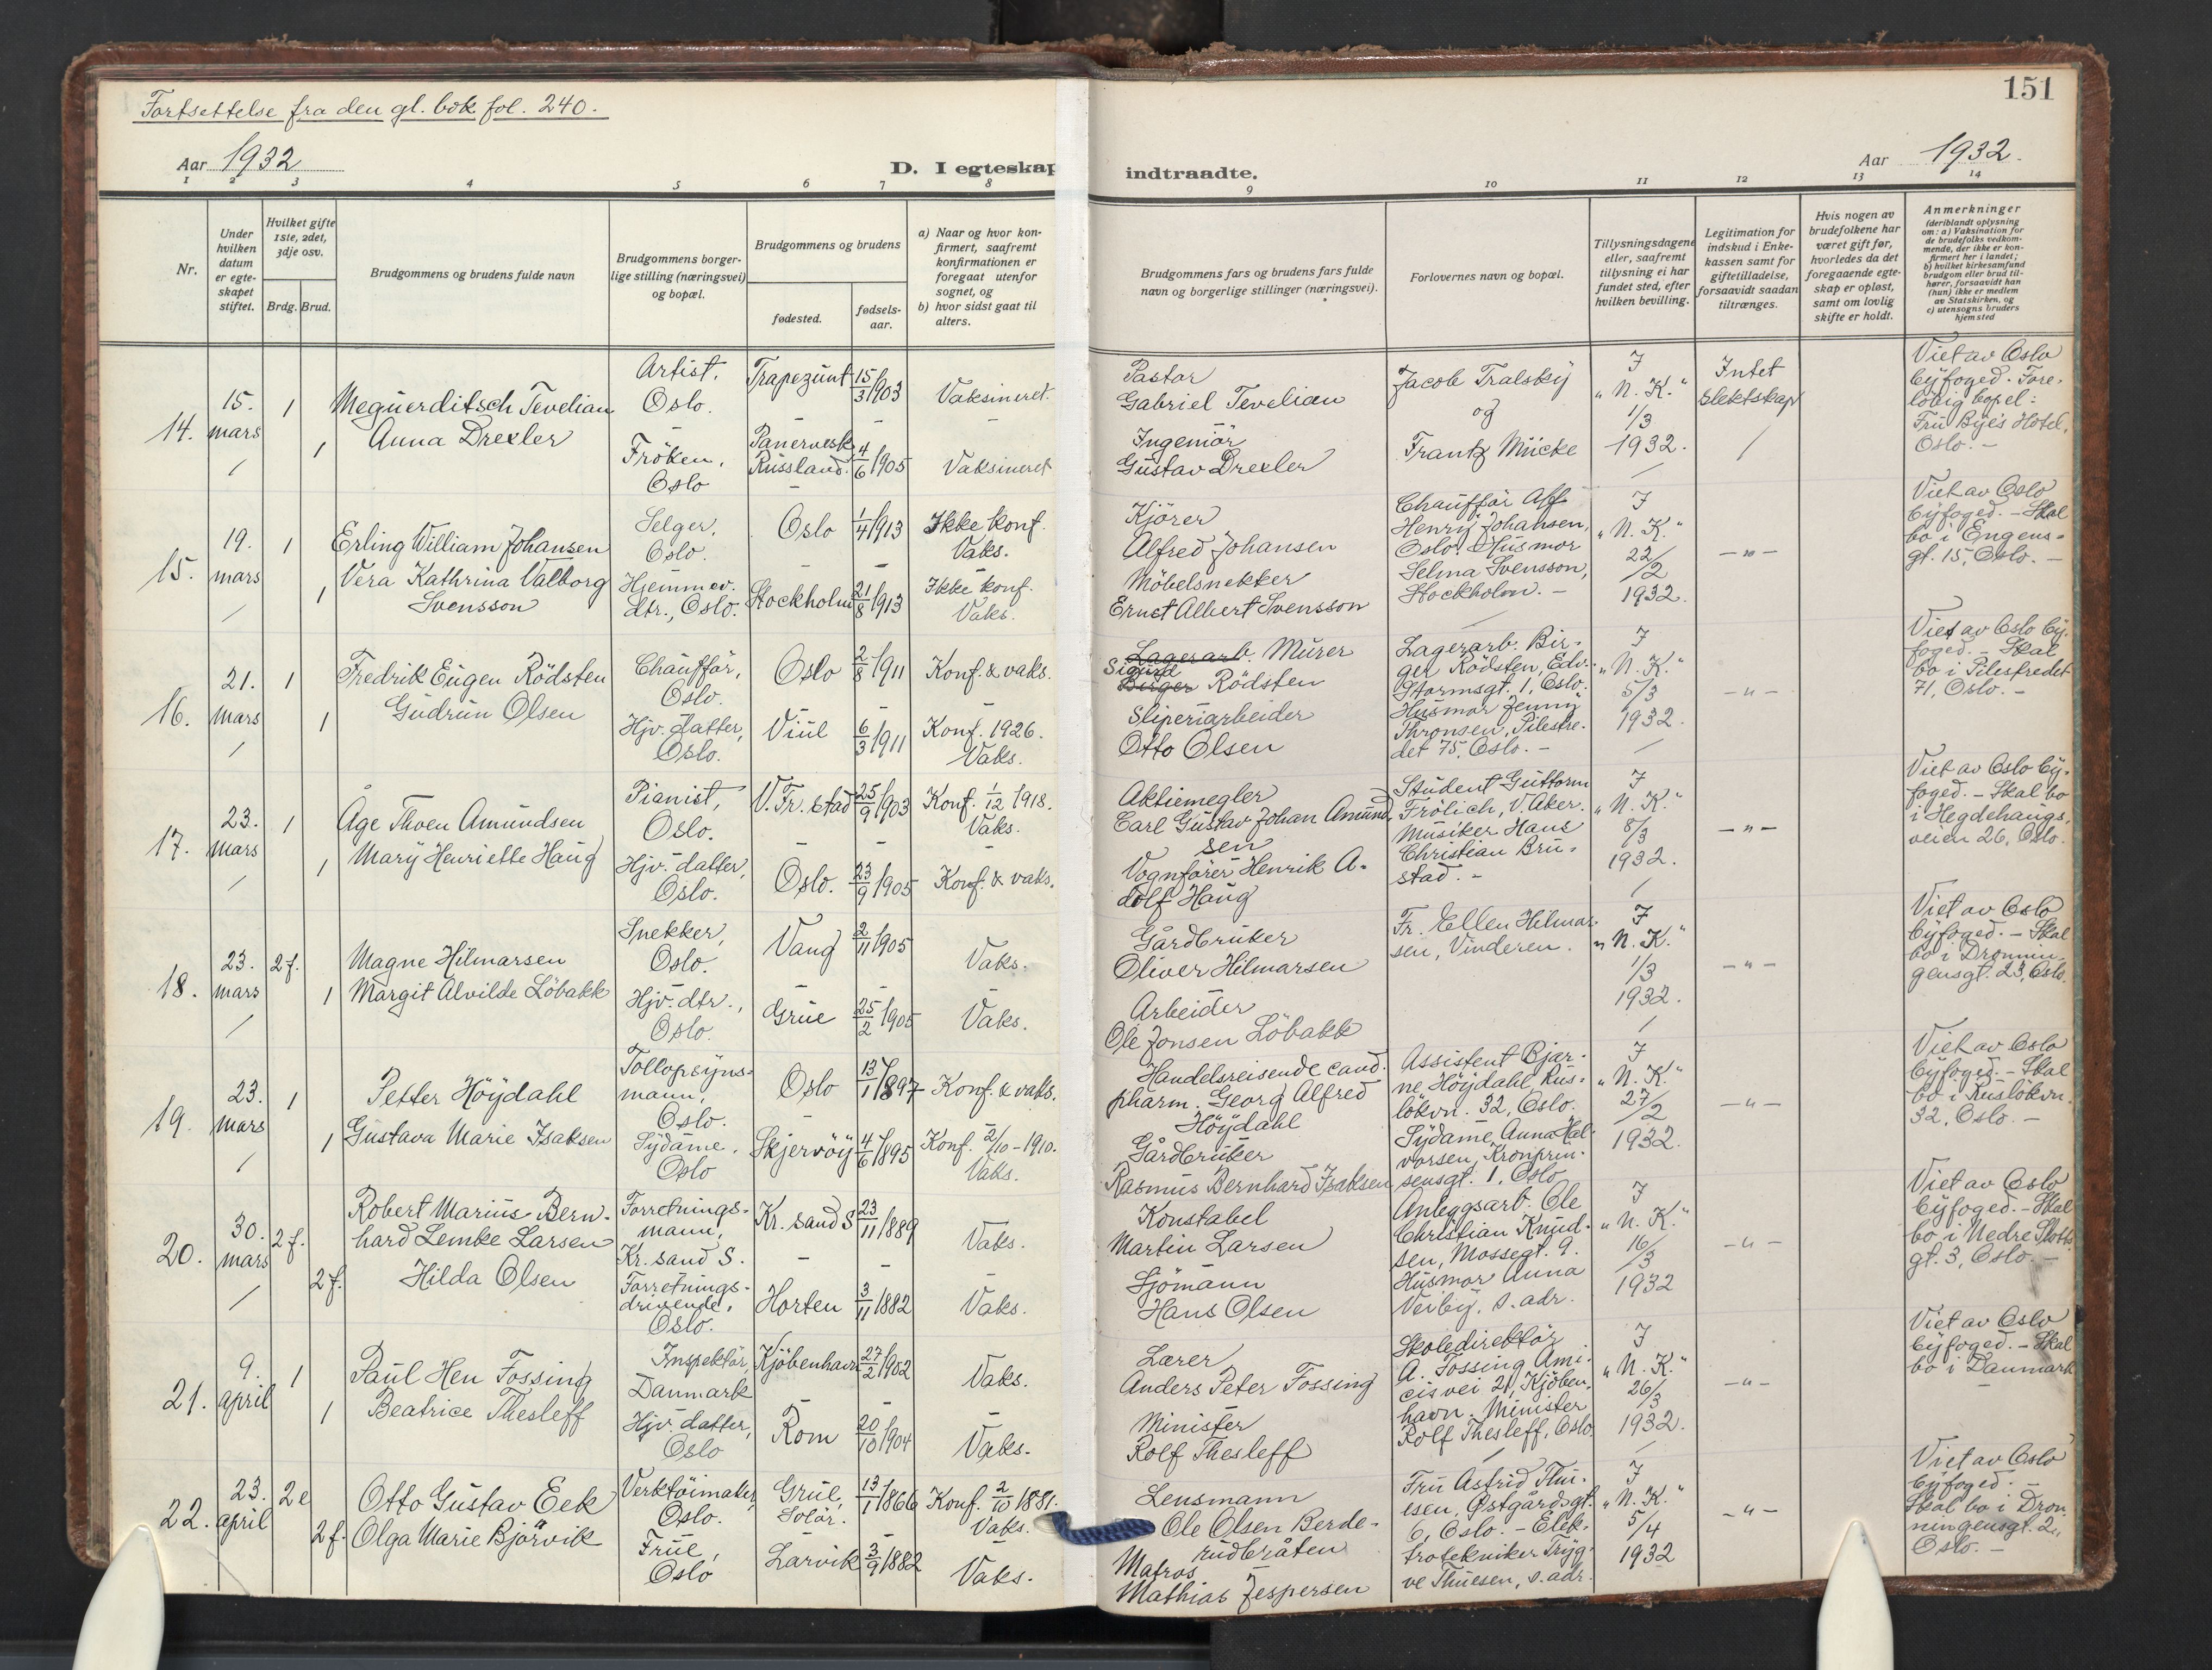 Fortsettelse fra den gl. bok fol. 240.
151
Aar 1932
D. I egteskap indtraadte.
Aar 1932.
1 2 3 4 5 6 7 8 9 10 11 12 13 14
Nr.
Under hvilken datum er egteskapet stiftet.
Hvilket gifte 1ste, 2det, 3dje osv.
Brdg. Brud.
Brudgommens og brudens fulde navn
Brudgommens borgerlige stilling (næringsvei) og bopæl.
Brudgommens og brudens
fødested.
fødselsaar.
a) Naar og hvor konfirmert, saafremt konfirmationen er foregaat utenfor sognet, og
b) hvor sidst gaat til alters.
Brudgommens fars og brudens fars fulde navn og borgerlige stillinger (næringsvei).
Forlovernes navn og bopæl.
Tillysningsdagene eller, saafremt tillysning ei har fundet sted, efter hvilken bevilling.
Legitimation for indskud i Enkekassen samt for giftetilladelse, forsaavidt saadan tiltrænges.
Hvis nogen av brudefolkene har været gift før, hvorledes da det foregaaende egteskap er opløst, samt om lovlig skifte er holdt.
Anmerkninger
(deriblandt oplysning om: a) Vaksination for de brudefolks vedkommende, der ikke er konfirmert her i landet;
b) hvilket kirkesamfund brudgom eller brud tilhører, forsaavidt han (hun) ikke er medlem av Statskirken, og
c) utensogns bruders hjemsted
14. 15. mars
1 Meguerditsch Tevelian
1 Anna Drexler
Artist, Oslo.
Fröken, Oslo
Trapezunt 15/3 1903
Russland. 4/6 1905
Vaksineret.
Vaksineret
Pastor
Gabriel Tevelian
Ingeniör
Gustav Drexler
Jacob Tralsky
og
Frantz Mücke
I "N. K." 1/3 1932.
Intet slektskap
Viet av Oslo byfoged. Foreløbig bopel: Fru Bye's Hotel, Oslo. -
15. 19. mars
1 Erling William Johansen
1 Vera Kathrina Valborg Svensson
Selger, Oslo.
Hjemmev. dtr., Oslo.
Oslo 1/4 1913
Stockholm 21/8 1913
Ikke konf. Vaks.
Ikke konf. Vaks.
Kjörer
Alfred Johansen
Möbelsnekker
Ernst Albert Svensson
Chauffør Alf Henry Johansen, Oslo. Husmor Selma Svensson, Stockholm. -
I "N. K." 22/2 1932.
- " -
Viet av Oslo byfoged. - Skal bo i Engens-gt. 15, Oslo. -
16. 21. mars
1 Fredrik Eugen Rödsten
1 Gudrun Olsen
Chauffør, Oslo.
Hjv. datter, Oslo.
Oslo 2/8 1911
Viul 6/3 1911
Konf. & vaks.
Konf. 1926. Vaks.
Lagerarb. Murer
Sigurd
Birger Rödsten
Sliperiarbeider
Otto Olsen
Lagerarb. Birger Rödsten, Edv. Stormsgt. 1, Oslo. Husmor Jenny Thronsen, Pilestredet 75, Oslo. -
I "N. K." 5/3 1932.
- " -
Viet av Oslo byfoged. - Skal bo i Pilestredet 71, Oslo. -
17. 23. mars
1 Åge Thoen Amundsen
1 Mary Henriette Haug
Pianist, Oslo.
Hjv. datter, Oslo.
V. Fr. stad 25/9 1903
Oslo. 23/9 1905
Konf. 1/12 1918. Vaks.
Konf. & vaks.
Aktiemegler
Carl Gustav Johan Amundsen
Vognfører Henrik Adolf Haug
Student Guttorm Frölich, V. Aker. Musiker Hans Christian Brustad. -
I "N. K." 8/3 1932.
- " -
Viet av Oslo byfoged. - Skal bo i Hegdehaugsveien 26, Oslo.
18. 23. mars
2 f. Magne Hilmarsen
1 Margit Alvilde Löbakk
Snekker, Oslo.
Hjv. dtr., Oslo.
Vang 2/11 1905
Grue 25/2 1905
Vaks.
Vaks.
Gårdbruker
Oliver Hilmarsen
Arbeider
Ole Jonsen Löbakk
Fr. Ellen Hilmarsen, Vinderen.
I "N. K." 1/3 1932.
- " -
Viet av Oslo byfoged. - Skal bo i Dronningensgt. 23, Oslo.
19. 23. mars
1 Petter Höydahl
1 Gustava Marie Isaksen
Tollopsynsmann, Oslo.
Sydame, Oslo
Oslo 13/1 1897
Skjervöy 4/6 1895
Konf. & vaks.
Konf. 2/10 - 1910. Vaks.
Handelsreisende cand. pharm. Georg Alfred Höydahl
Gårdbruker
Rasmus Bernhard Isaksen
Assistent Bjarne Höydahl Ruslökvn. 32, Oslo. Sydame Anna Halvorsen, Kronprinsensgt. 1, Oslo
I "N. K." 27/2 1932.
- " -
Viet av Oslo byfoged. - Skal bo i Ruslökvn. 32, Oslo. -
20. 30. mars
2 f. Robert Marius Bernhard Lemke Larsen
2 f. Hilda Olsen
Forretningsmann, Kr. sand S.
Forretningsdrivende, Oslo.
Kr. sand S 23/11 1889
Horten 3/11 1882
Vaks.
Vaks.
Konstabel
Martin Larsen
Sjömann
Hans Olsen
Anleggsarb. Ole Christian Knudsen, Mossegt. 9. Husmor Anna Veiby, s. adr.
I "N. K." 16/3 1932
- " -
Viet av Oslo byfoged. - Skal bo i Nedre Slottsgt. 3, Oslo. -
21. 9. april
1 Paul Hen Fossing
1 Beatrice Thesleff
Inspektör, Danmark
Hjv. datter, Oslo
Kjöbenhavn 27/2 1902
Rom 20/10 1904
Vaks.
Vaks.
Lærer
Anders Peter Fossing
Minister
Rolf Thesleff
Skoledirektør A. Fossing Amicisvei 21, Kjöbenhavn. Minister Rolf Thesleff, Oslo.
I "N. K." 26/3 1932.
- " -
Viet av Oslo byfoged. - Skal bo i Danmark
22. 23. april
2 e Otto Gustav Eek
2 f. Olga Marie Bjørvik
Verktöimaker, Oslo.
Frue, Oslo
Grue, Solör. 13/1 1866
Larvik 3/9 1882
Konf. 2/10 1881. Vaks.
Vaks.
Lensmann
Ole Olsen Berderudbråten
Matros
Mathias Jespersen
Fru Astrid Thuesen, Østgårdsgt. 6, Oslo. - Elektrotekniker Trygve Thuesen, s. adr.
I "N. K." 5/4 1932
- " -
Viet av Oslo byfoged. - Skal bo i Dronningensgt. 2, Oslo. -